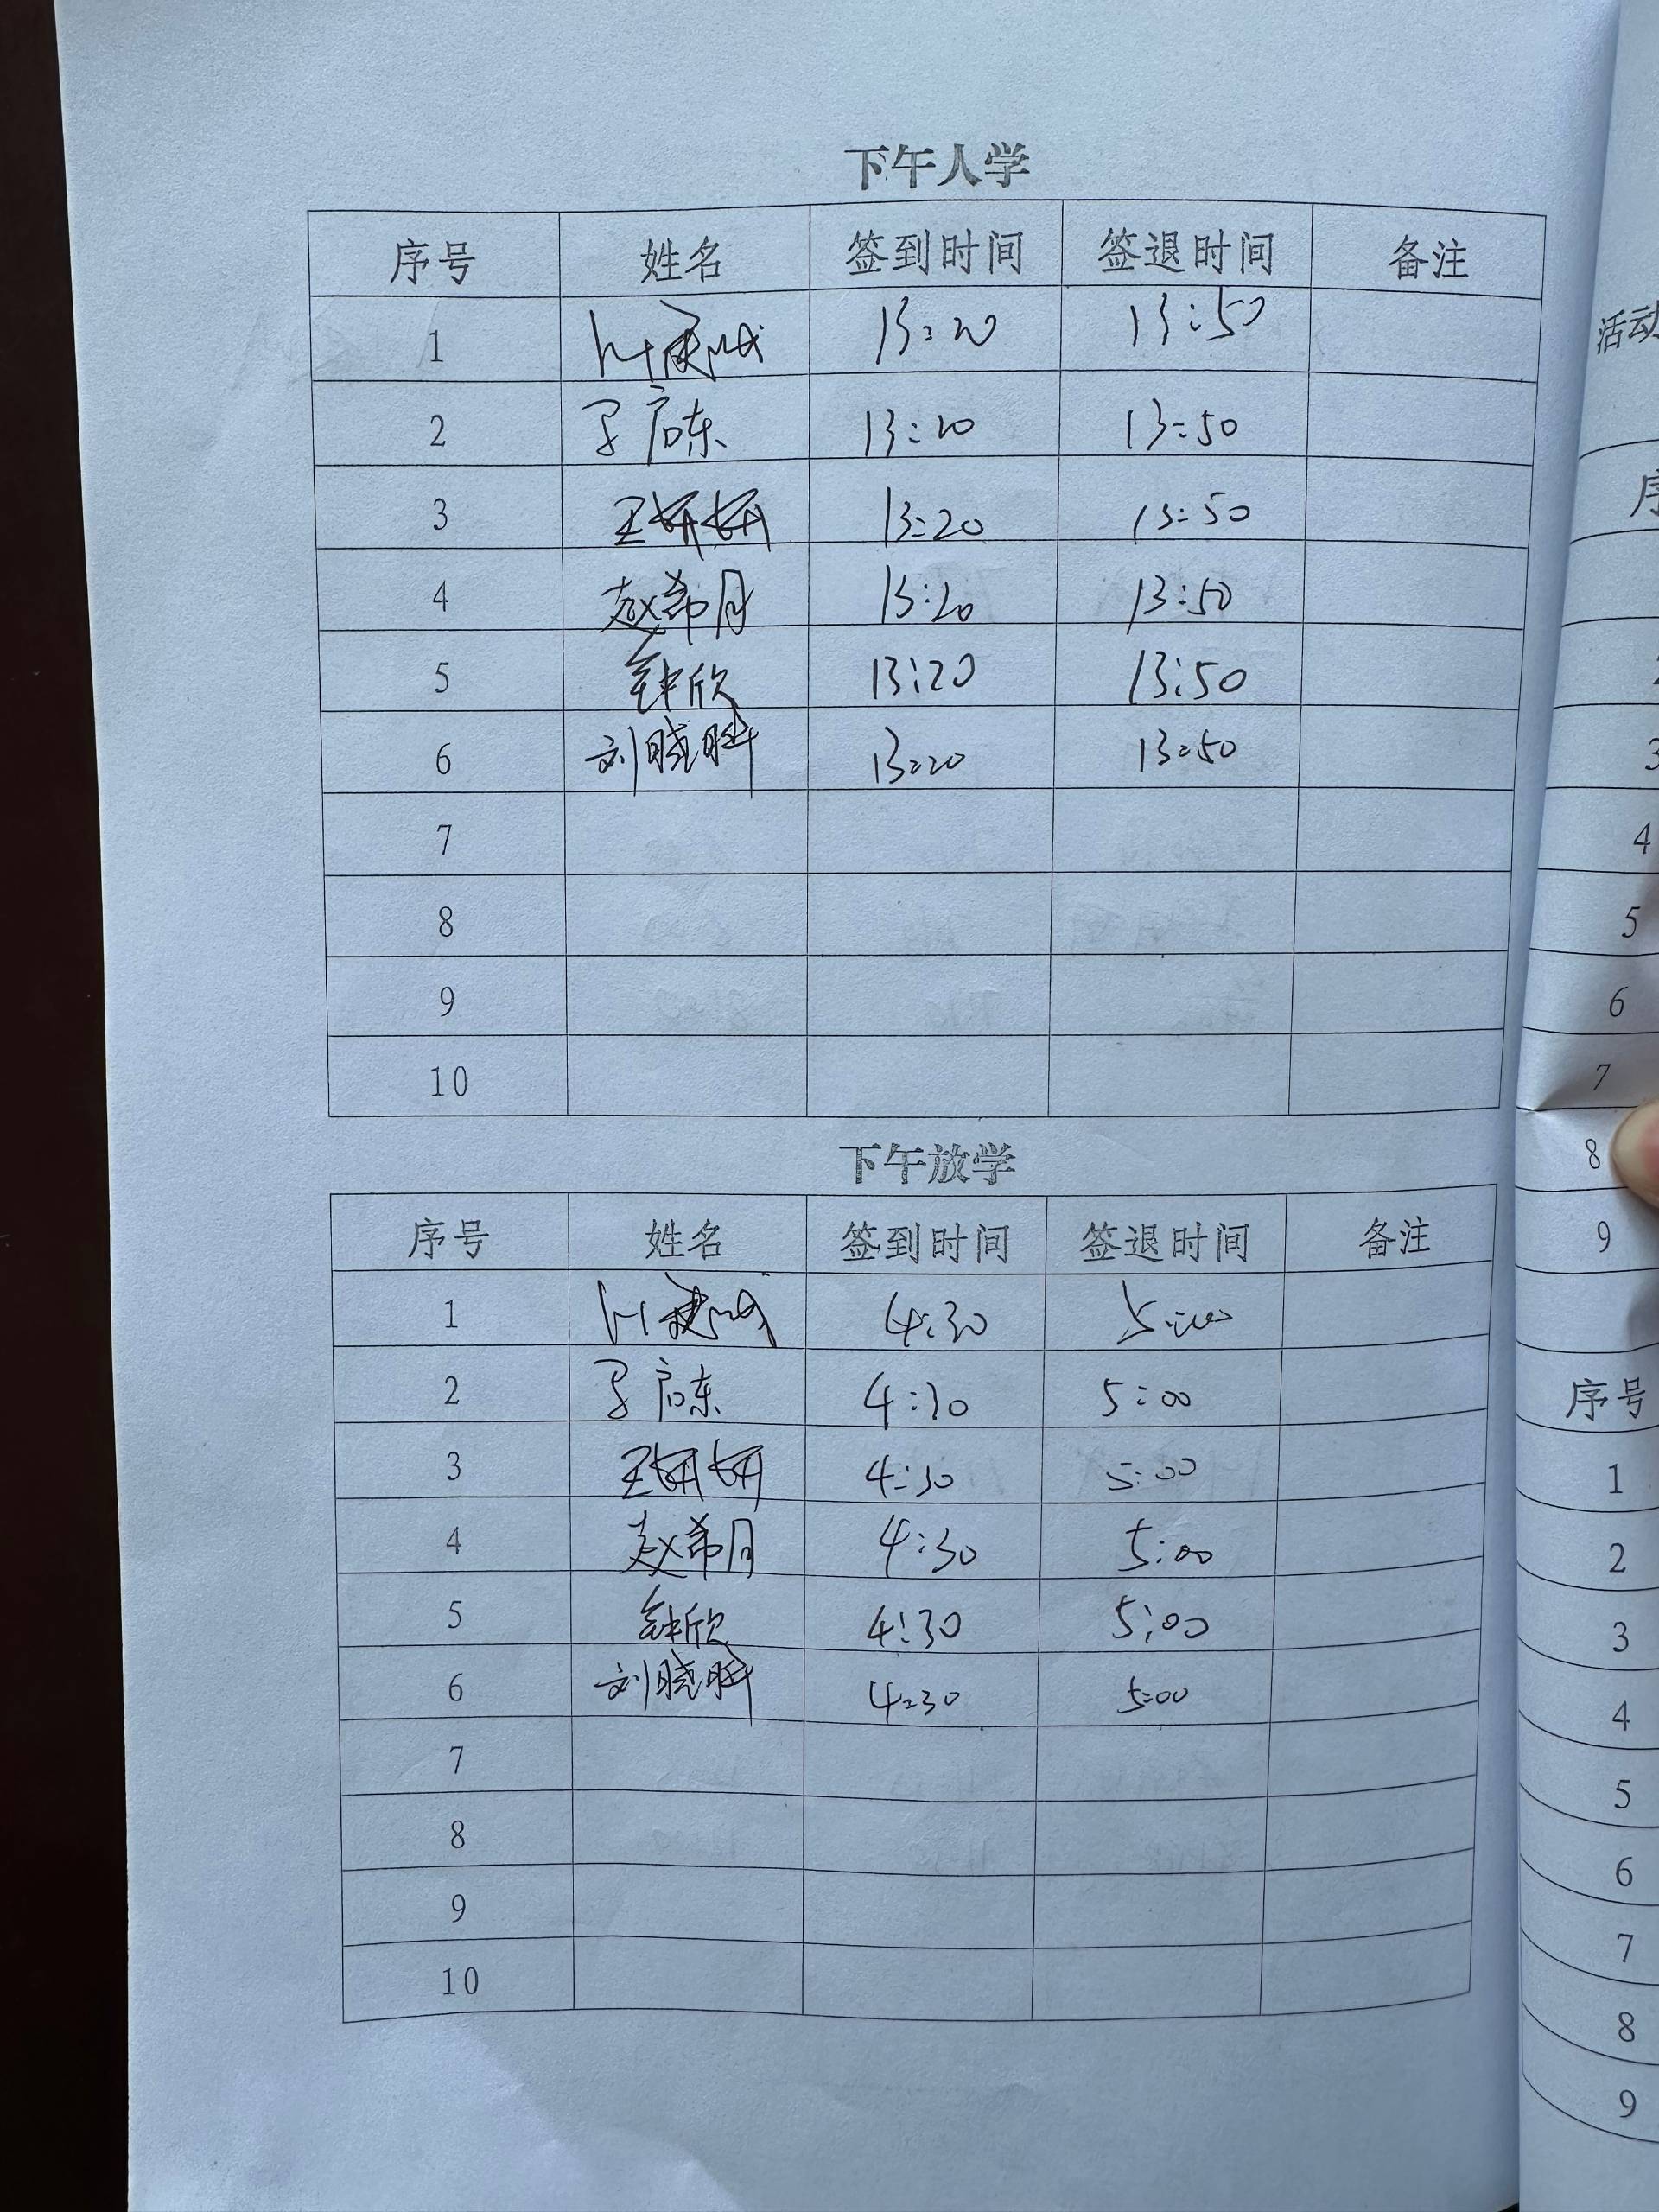 下午人学
序号 姓名 签到时间 签退时间 备注
1 13:20 13:50
2 启东 13:20 13:50
3 王妍妍 13:20 13:50
4 赵希月 13:20 13:50
5 钟欣 13:20 13:50
6 刘晓 13:20 13:50
7
8
9
10
下午放学
序号 姓名 签到时间 签退时间 备注
1 4:30 5:00
2 启东 4:30 5:00
3 王妍妍 4:30 5:00
4 赵希月 4:30 5:00
5 钟欣 4:30 5:00
6 刘晓 4:30 5:00
7
8
9
10
活动
序
3
4
5
6
7
8
9
序号
1
2
3
4
5
6
7
8
9